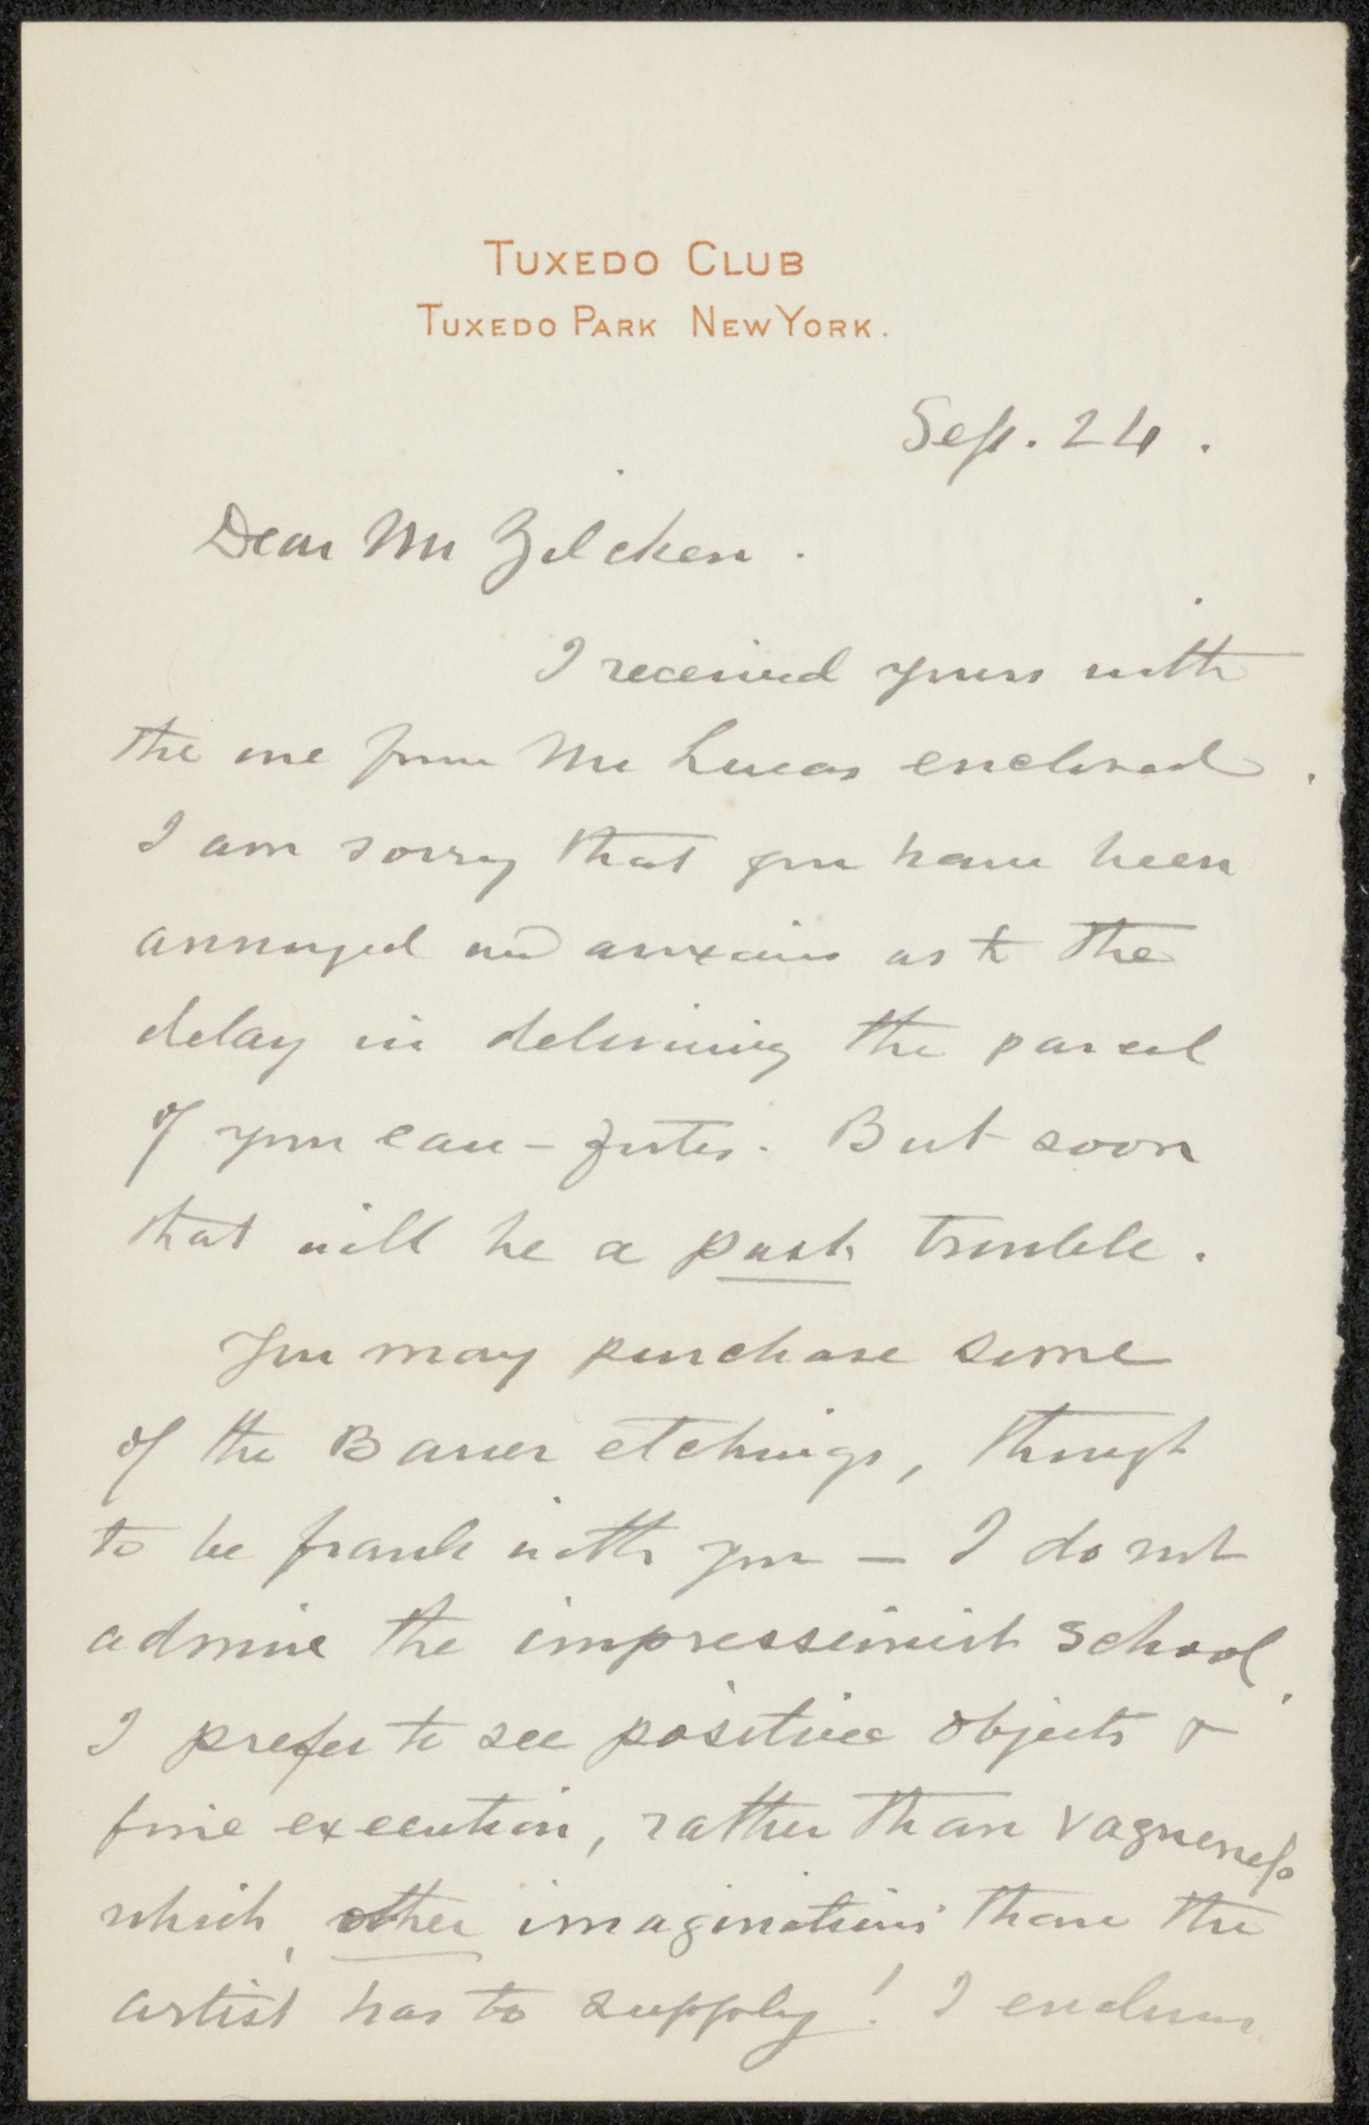 TUXEDO CLUB
TUXEDO PARK NEW YORK.
Sep. 24.
Dear Mr Zilcken.
I received yours with
the one from Mr Lucas enclosed.
I am sorry that you have been
annoyed and anxious as to the
delay in delivering the parcel
of your eau-fortes. But soon
that will be a past trouble.
You may purchase some
of the Bauer etchings, though
to be frank with you — I do not
admire the impressionist school.
I prefer to see positive objects &
fine execution, rather than vagueness
which, other imaginations than the
artist has to supply! I enclose